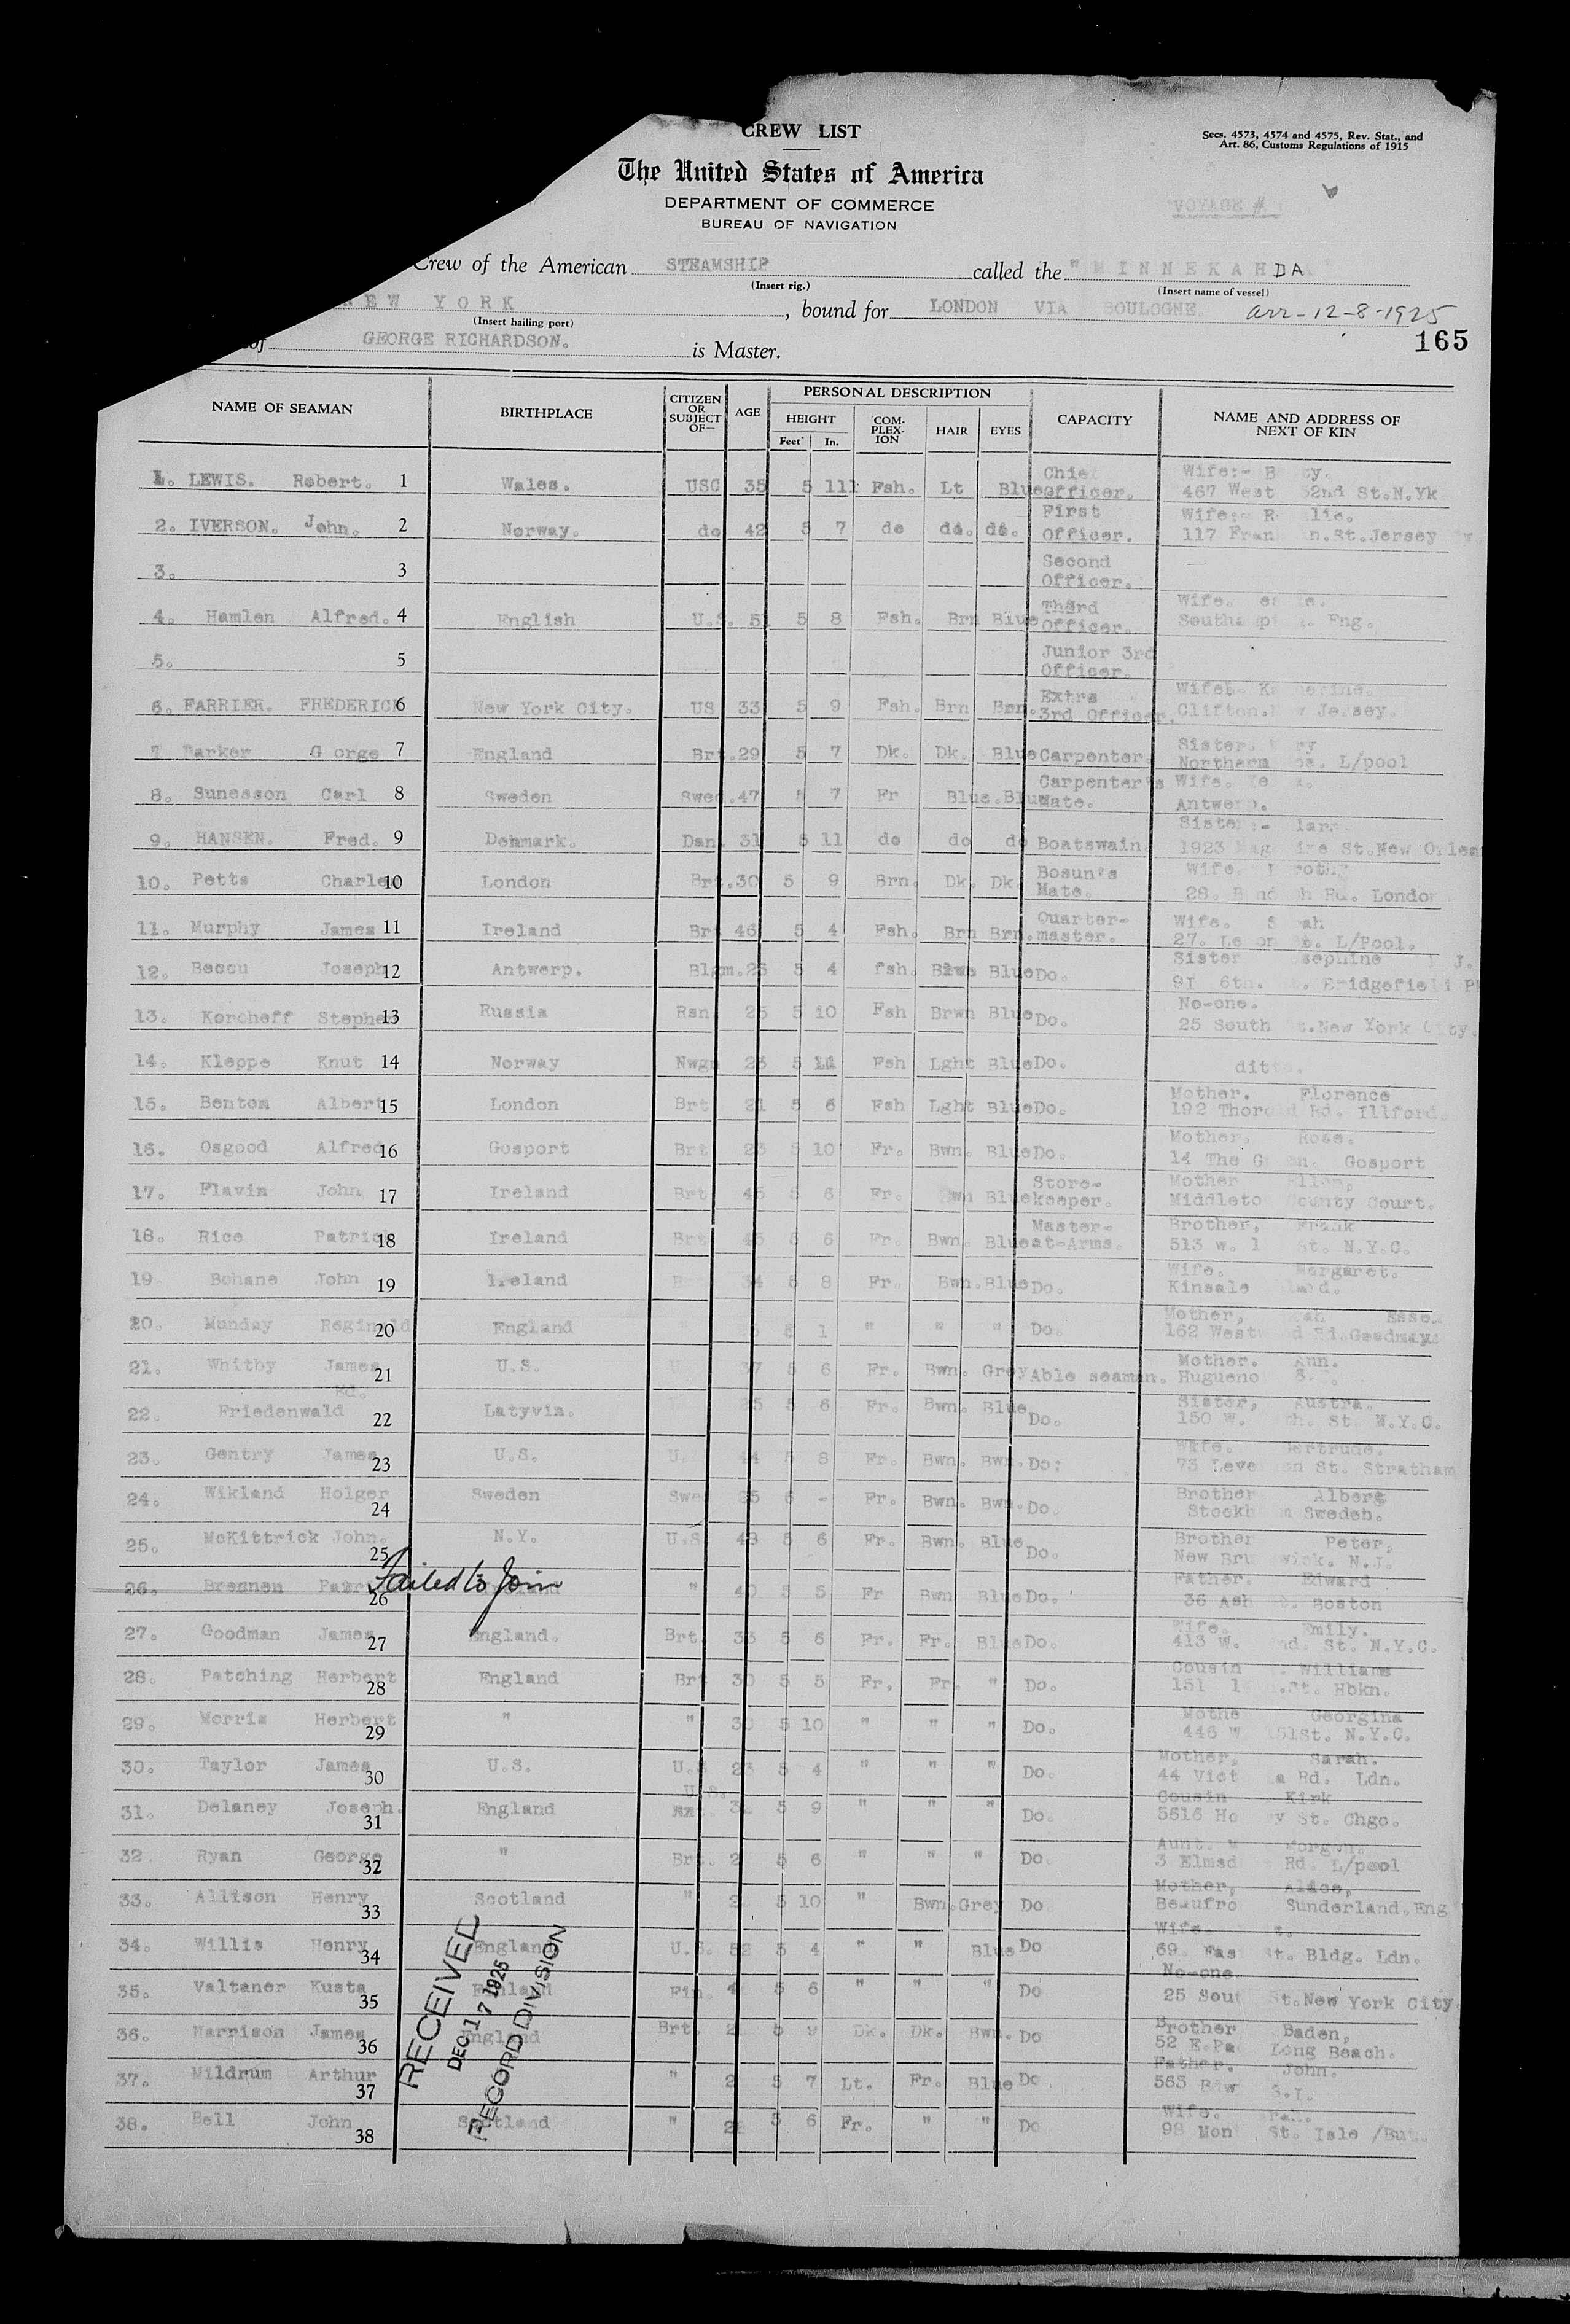 CREW LIST
Secs. 4573, 4574 and 4575, Rev. Stat., and
Art. 86, Customs Regulations of 1915
The United States of America
DEPARTMENT OF COMMERCE
BUREAU OF NAVIGATION
VOYAGE #
Crew of the American STEAMSHIP called the "MINNEKAHDA"
(Insert rig.) (Insert name of vessel)
NEW YORK, bound for LONDON VIA BOULOGNE. arr-12-8-1925
(Insert hailing port)
of GEORGE RICHARDSON. is Master.
165
NAME OF SEAMAN BIRTHPLACE CITIZEN OR SUBJECT OF— AGE PERSONAL DESCRIPTION CAPACITY NAME AND ADDRESS OF NEXT OF KIN
HEIGHT COM-PLEX-ION HAIR EYES
Feet In.
1. LEWIS. Robert. 1 Wales. USC 35 5 11 Fsh. Lt Blue Chief Officer. Wife:- 467 West 52nd St.N.Yk
2. IVERSON. John. 2 Norway. do 42 5 7 do do. do. First Officer. Wife:- 117 St.Jersey
3. 3 Second Officer.
4. Hamlen Alfred. 4 English U.S. 51 5 8 Fsh. Brn Blue Third Officer. Wife. Eng.
5. 5 Junior 3rd Officer.
6. FARRIER. FREDERICK 6 New York City. US 33 5 9 Fsh. Brn Brn. Extra 3rd Officer. Wife:- Clifton. Jersey.
7 Barker G orge 7 England Brt. 29 5 7 Dk. Dk. Blue Carpenter. Sister. L/pool
8. Sunesson Carl 8 Sweden Swed. 47 5 7 Fr Blue. Blue Carpenter's Mate. Wife. Antwerp.
9. HANSEN. Fred. 9 Denmark. Dan. 31 5 11 do do do Boatswain. Sister:- 1923 St.New Orlea
10. Petts Charles 10 London Brt. 30 5 9 Brn. Dk. Dk. Bosun's Mate. Wife. 28. Rd. London
11. Murphy James 11 Ireland Brt 46 5 4 Fsh. Brn Brn. Quarter-master. Wife. 27. L/Pool.
12. Beccu Joseph 12 Antwerp. Blgm. 5 4 fsh. Blue Do. Sister J. 91 6th. Bridgefield
13. Korcheff Stephen 13 Russia Rsn 25 5 10 Fsh Brwn Blue Do. No-one. 25 South New York City.
14. Kleppe Knut 14 Norway Nwgn 5 11 Fsh Lght Blue Do. ditto.
15. Benton Albert 15 London Brt 21 5 6 Fsh Lght Blue Do. Mother. Florence 192 Rd. Illford.
16. Osgood Alfred 16 Gosport Brt 5 10 Fr. Bwn. Blue Do. Mother. Rose. 14 The Gosport
17. Flavin John 17 Ireland Brt 45 5 6 Fr. Blue Store-keeper. Mother Ellen, County Court.
18. Rice Patrick 18 Ireland Brt 5 6 Fr. Bwn. Blue Master-at-Arms. Brother, Frank 513 w. St. N.Y.C.
19. Bohane John 19 Ireland 5 8 Fr. Bwn. Blue Do. Wife. Margaret. Kinsale
20. Munday Reginald 20 England " " " Do. Mother, 162
21. Whitby James Ed. 21 U.S. 37 5 6 Fr. Bwn. Grey Able seaman. Mother. Ann.
22. Friedenwald 22 Latyvia. 5 6 Fr. Bwn. Blue Do. Sister, 150 W. St. N.Y.C.
23. Gentry James 23 U.S. 44 5 8 Fr. Bwn. Bwn. Do: Wife. Gertrude. 73 St. Stratham
24. Wikland Holger 24 Sweden Swed 6 - Fr. Bwn. Bwn. Do. Brother Albert Sweden.
25. McKittrick John. 25 N.Y. U.S 43 5 6 Fr. Bwn. Blue Do. Brother Peter, New N.J.
26. Brennen 26 Failed to Join " 40 5 5 Fr Bwn Blue Do. Father. Edward 36 Boston
27. Goodman James 27 England. Brt. 5 6 Fr. Fr. Blue Do. Wife. Emily. 413 W. St. N.Y.C.
28. Patching Herbert 28 England Brt 30 5 5 Fr. Fr. " Do. Cousin Williams 151 St. Hbkn.
29. Morris Herbert 29 " " 30 5 10 " " " Do. Georgina 446 W 151St. N.Y.C.
30. Taylor James 30 U.S. U.S 5 4 " " " Do. Mother, Sarah. 44 Rd. Ldn.
31. Delaney Joseph. 31 England U.S. 5 9 " " " Do. Cousin Kirk 5616 St. Chgo.
32. Ryan George 32 " Brt. 5 6 " " " Do Aunt. 3 Rd. L/pool
33. Allison Henry 33 Scotland " 5 10 " Bwn. Grey Do Mother, Alice, Sunderland.Eng
34. Willis Henry 34 England U.S. 52 5 4 " " Blue Do Wife. 69. St. Bldg. Ldn.
35. Valtaner Kusta 35 Finland Fin. 5 6 " " " Do No-one. 25 St.New York City
36. Harrison James 36 England Brt. 5 9 Dk. Dk. Bwn. Do Brother Baden, 52 Long Beach.
37. Mildrum Arthur 37 " 5 7 Lt. Fr. Blue Do Father. John. 583 S.I.
38. Bell John 38 Scotland " 5 6 Fr. " " Do Wife. 98 St. Isle /But.
RECEIVED
DEC 17 1925
RECORD DIVISION